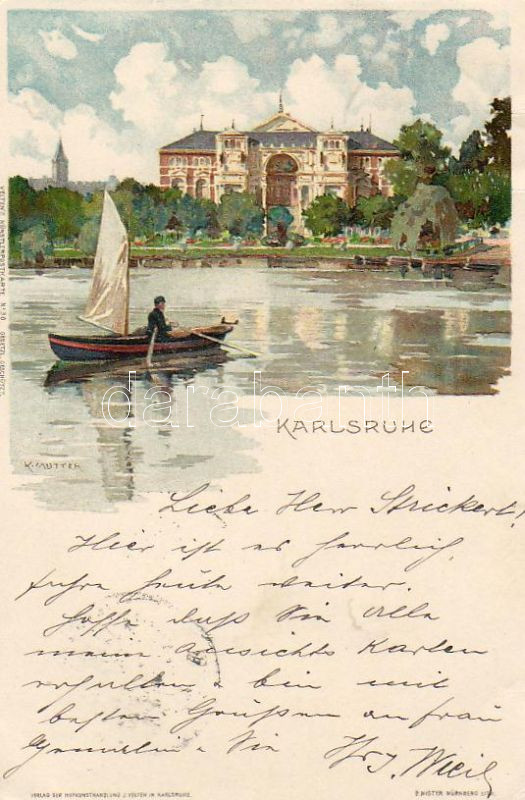 VELTEN'S KÜNSTLERPOSTKARTE Nº 30 GESETZL. GESCHÜTZT.
darabanth
KARLSRUHE
K. MUTTER
Liebe Herr Strickert!
Hier ist es herrlich,
fahre heute weiter.
Hoffe daß Sie Alle
meine Ansichts Karten
erhalten u. bin mit
besten Grüßen an Frau
Gemalin u. Sie Ihr J. Weil
VERLAG DER HOFKUNSTHANDLUNG J. VELTEN IN KARLSRUHE.
E. NISTER NÜRNBERG LITH.